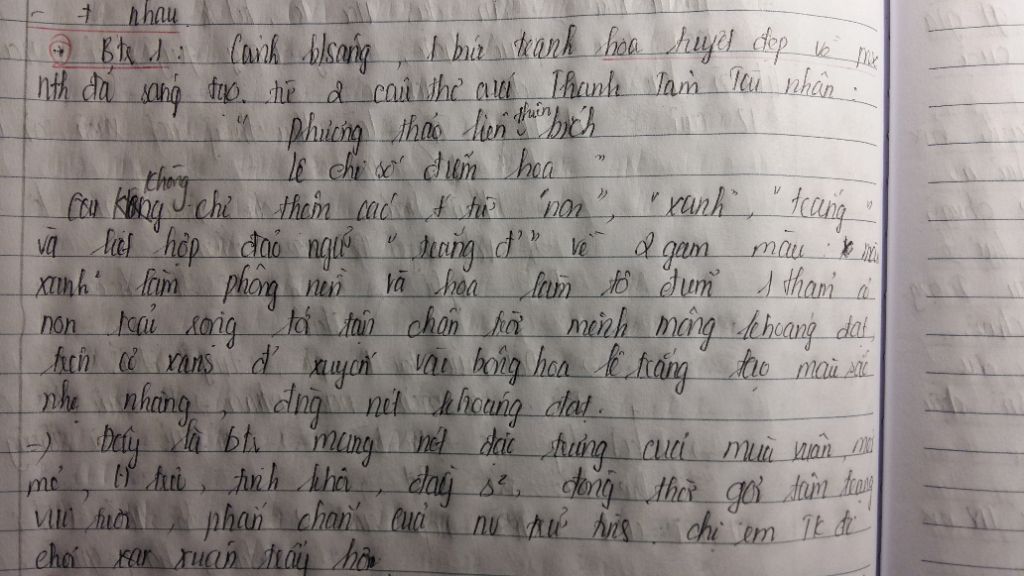 - + nhau
→ Btx 1: Cảnh b/sáng, 1 bức tranh hoa tuyệt đẹp về mx
Nth đã sáng tạo từ 2 câu thơ cuả Thanh Tâm Tài nhân:
" phương thảo liên thiên bích
lê chi số điểm hoa "
Cau không chỉ thêm các t từ "non", "xanh", "trắng"
và kết hợp đảo ngữ "trắng đ'" về 2 gam màu:
xanh làm phông nền và hoa lam tô điểm 1 thảm cỏ
non trải rộng tới tận chân trời mênh mông khoáng đạt,
trên cỏ xanh đ' xuyến vài bông hoa lê trắng tạo màu sắc
nhẹ nhàng, đng nét khoáng đạt.
=> Đây là btx mang nét đặc trưng cuả mùa xuân, mới
mẻ, tinh khôi, đầy s², đồng thời gợi tâm trạng
vui tươi, phấn chấn cuả chị em TK đi
chơi xuân trẩy hội